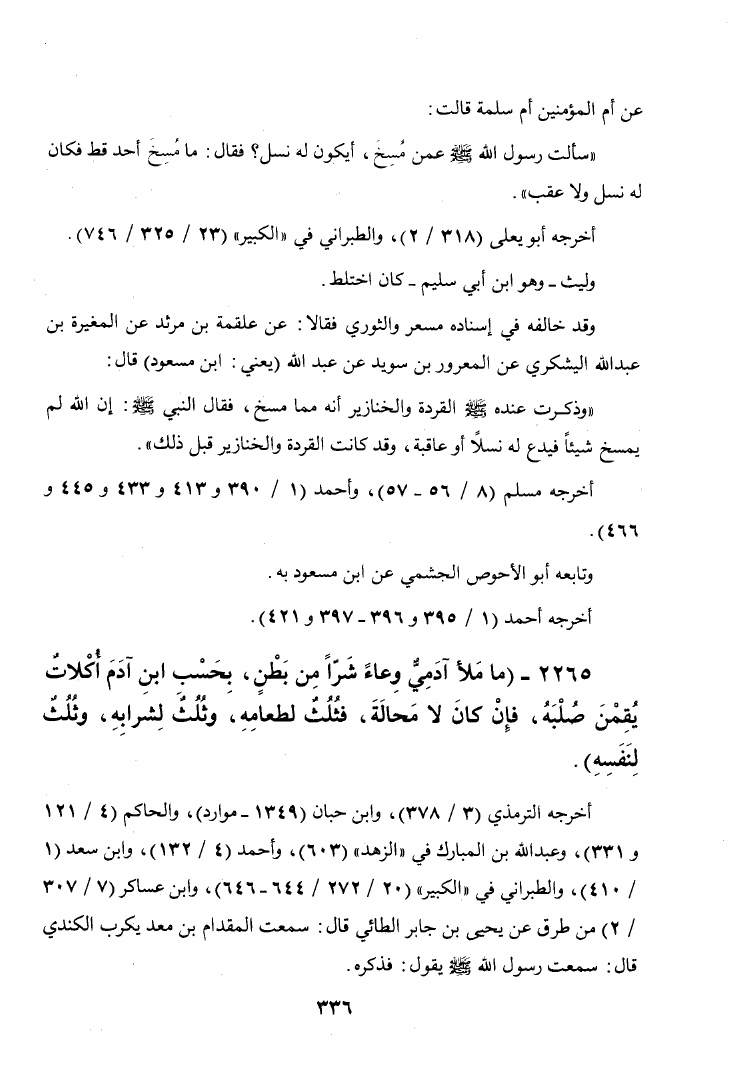 عن أم المؤمنين أم سلمة قالت:
«سألت رسول الله ﷺ عمن مُسِخَ، أيكون له نسل؟ فقال: ما مُسِخَ أحد قط فكان
له نسل ولا عقب».
أخرجه أبو يعلى (٣١٨ / ٢)، والطبراني في «الكبير» (٢٣ / ٣٢٥ / ٧٤٦).
وليث ـ وهو ابن أبي سليم ـ كان اختلط.
وقد خالفه في إسناده مسعر والثوري فقالا: عن علقمة بن مرثد عن المغيرة بن
عبدالله اليشكري عن المعرور بن سويد عن عبد الله (يعني: ابن مسعود) قال:
«وذكرت عنده ﷺ القردة والخنازير أنه مما مسخ، فقال النبي ﷺ: إن الله لم
يمسخ شيئاً فيدع له نسلاً أو عاقبة، وقد كانت القردة والخنازير قبل ذلك».
أخرجه مسلم (٨ / ٥٦ ـ ٥٧)، وأحمد (١ / ٣٩٠ و ٤١٣ و ٤٣٣ و ٤٤٥ و
٤٦٦).
وتابعه أبو الأحوص الجشمي عن ابن مسعود به.
أخرجه أحمد (١ / ٣٩٥ و ٣٩٦ ـ ٣٩٧ و ٤٢١).
٢٢٦٥ ـ (ما مَلأ آدَمِيٌّ وِعاءً شَرّاً مِن بَطْنٍ، بِحَسْبِ ابنِ آدَمَ أُكْلاتٌ
يُقِمْنَ صُلْبَهُ، فإِنْ كانَ لا مَحالَةَ، فثُلُثٌ لطعامِهِ، وثُلُثٌ لِشرابِهِ، وثُلُثٌ
لِنَفَسِهِ).
أخرجه الترمذي (٣ / ٣٧٨)، وابن حبان (١٣٤٩ ـ موارد)، والحاكم (٤ / ١٢١
و ٣٣١)، وعبدالله بن المبارك في «الزهد» (٦٠٣)، وأحمد (٤ / ١٣٢)، وابن سعد (١
/ ٤١٠)، والطبراني في «الكبير» (٢٠ / ٢٧٢ / ٦٤٤ ـ ٦٤٦)، وابن عساكر (٧ / ٣٠٧
/ ٢) من طرق عن يحيى بن جابر الطائي قال: سمعت المقدام بن معد يكرب الكندي
قال: سمعت رسول الله ﷺ يقول: فذكره.
٣٣٦